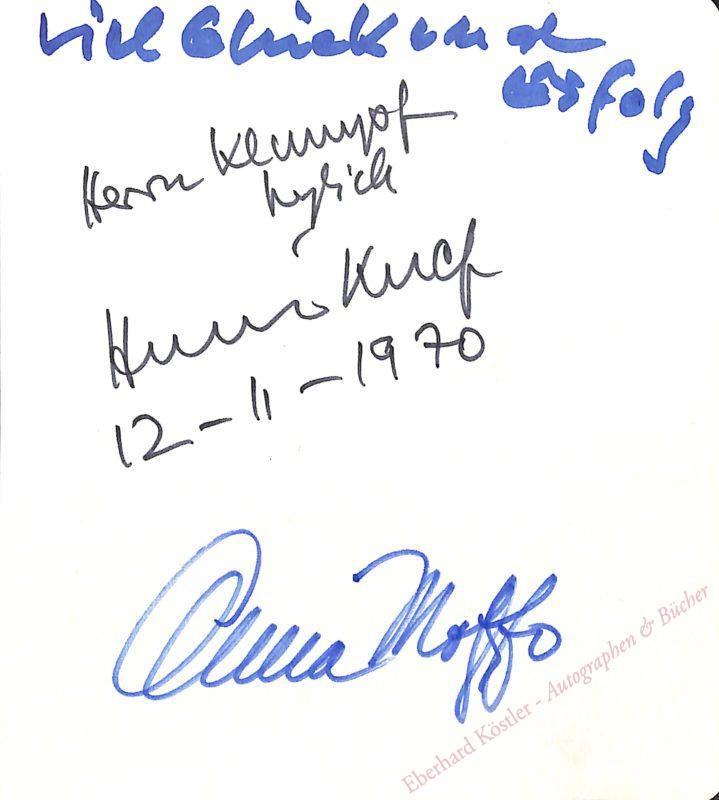 viel Glück und
Erfolg
Herrn Kempf
herzlich
12-11-1970
Anna Moffo
Eberhard Köstler - Autographen & Bücher